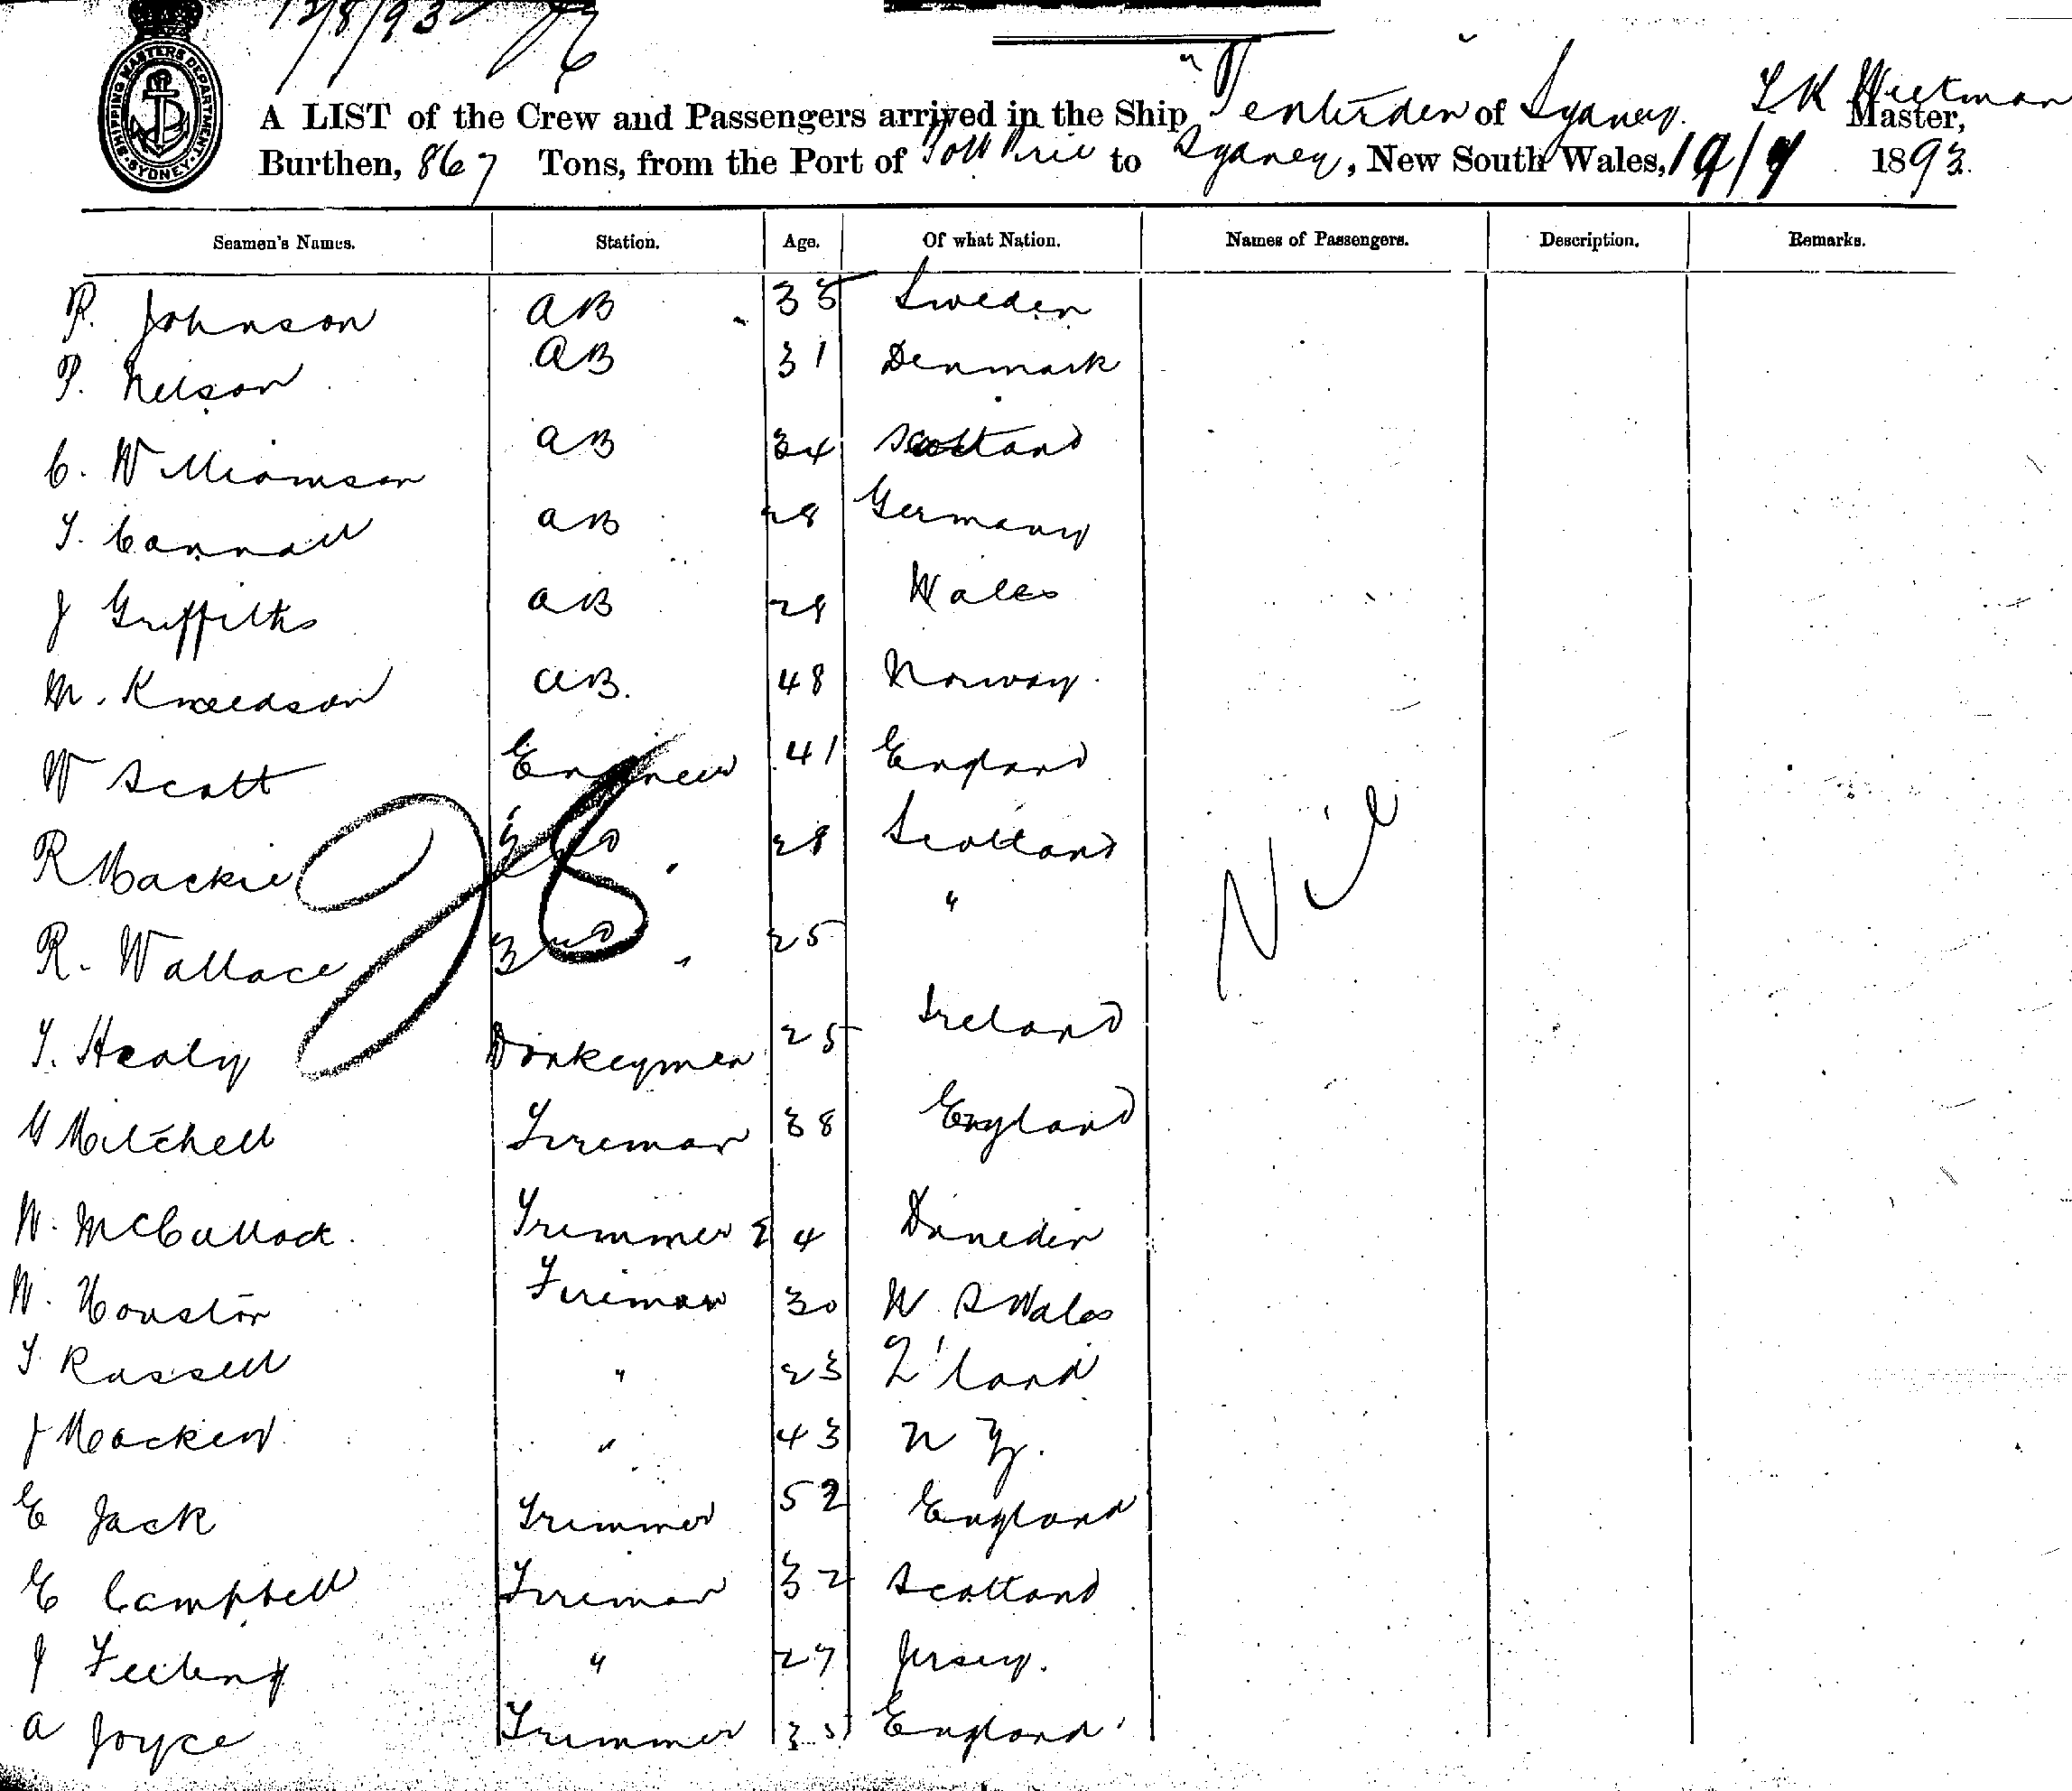 12/8/93
SHIPPING MASTERS DEPARTMENT SYDNEY
A LIST of the Crew and Passengers arrived in the Ship "Tenterden of Sydney. Master,
Burthen, 867 Tons, from the Port of Port Pirie to Sydney, New South Wales, 1893.
Seamen's Names. Station. Age. Of what Nation. Names of Passengers. Description. Remarks.
P. Johnson AB 35 Sweden
P. Nelson AB 31 Denmark
C. Williamson AB 34 Scotland
AB 28 Germany
J Griffiths AB 28 Wales
M. AB. 48 Norway.
W Scott Engineer 41 England
R Mackie 28 Scotland
R. Wallace 25 "
T. Healy Donkeyman 25 Ireland
Mitchell Fireman 38 England
W. McCullock. Trimmer 24 Dunedin
W. Houston Fireman 30 N S Wales
T Russell " 23 Q'land
J " 43 N Z.
E Jack Trimmer 52 England
E Campbell Fireman 32 Scotland
J " 27 Jersey.
A Joyce Trimmer 35 England
28
Nil